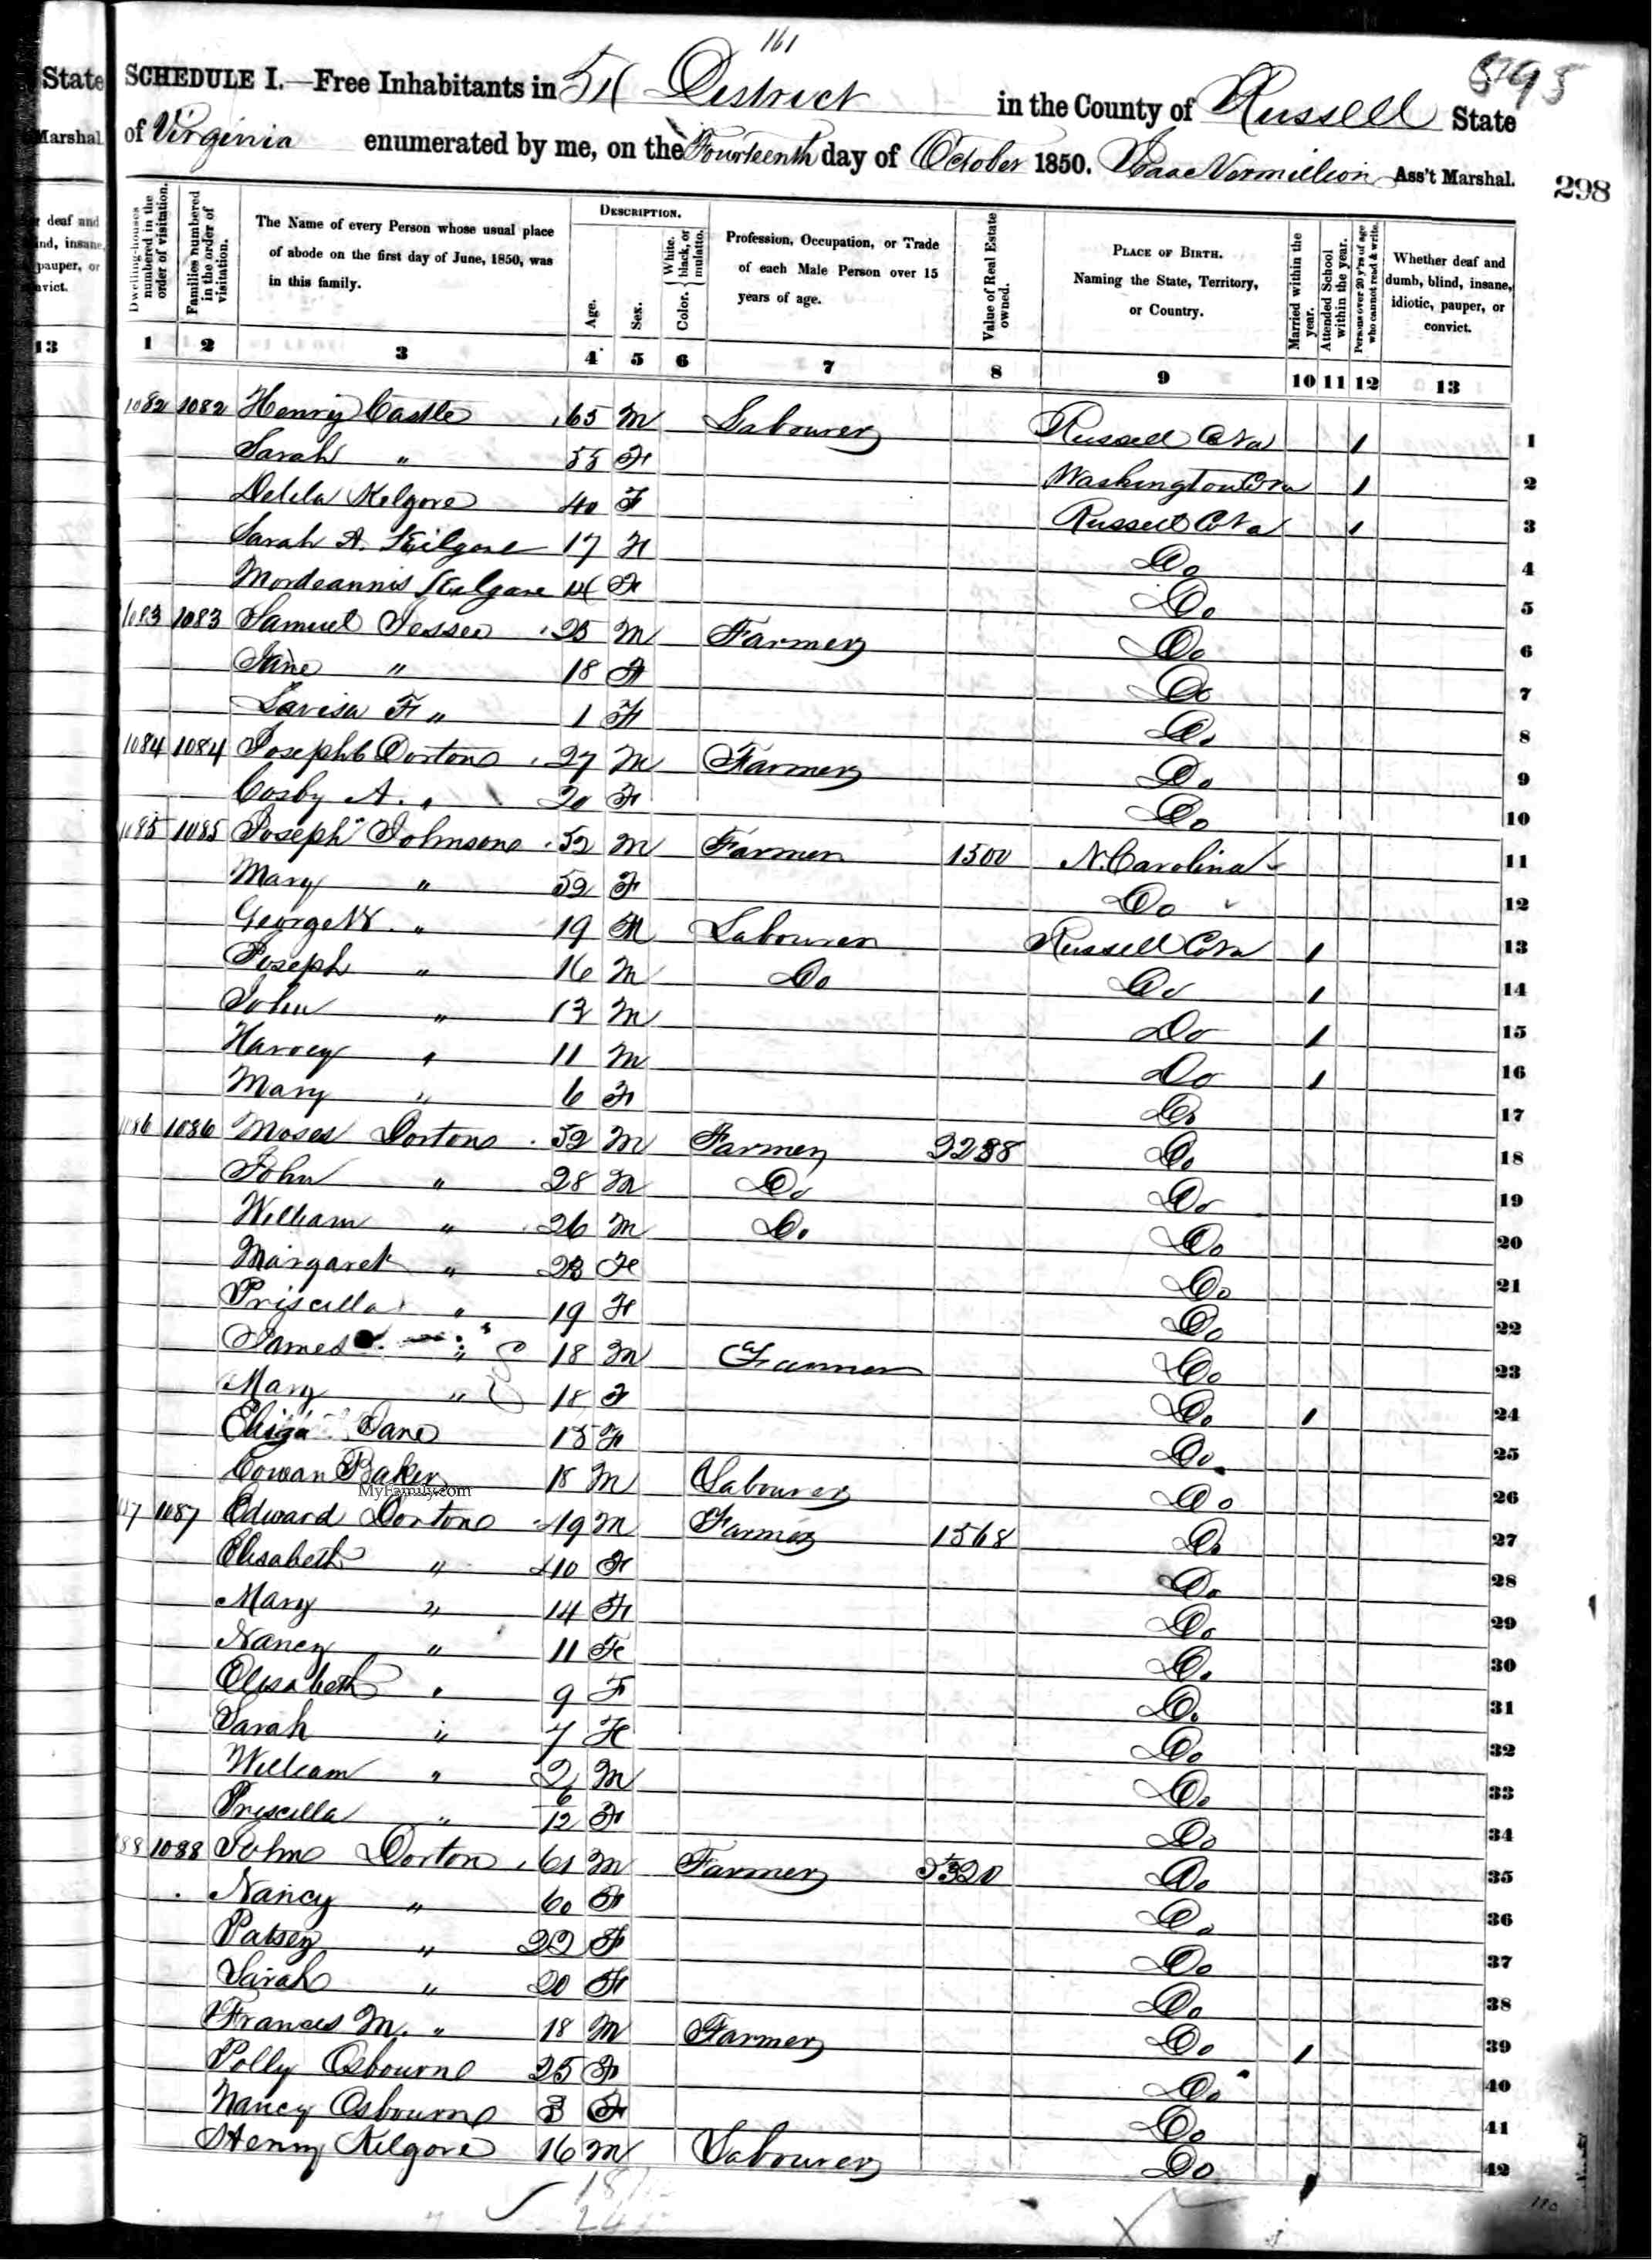 161
5195
State
SCHEDULE I.—Free Inhabitants in 54 District in the County of Russell State
Marshal
of Virginia enumerated by me, on the Fourteenth day of October 1850. Isaac Vermillion Ass't Marshal.
298
deaf and
ind, insane,
pauper, or
nvict.
13
Dwelling-houses numbered in the order of visitation.
Families numbered in the order of visitation.
The Name of every Person whose usual place of abode on the first day of June, 1850, was in this family.
DESCRIPTION.
Age.
Sex.
Color. { White, black, or mulatto.
Profession, Occupation, or Trade of each Male Person over 15 years of age.
Value of Real Estate owned.
PLACE OF BIRTH. Naming the State, Territory, or Country.
Married within the year.
Attended School within the year.
Persons over 20 y'rs of age who cannot read & write.
Whether deaf and dumb, blind, insane, idiotic, pauper, or convict.
1 2 3 4 5 6 7 8 9 10 11 12 13
1082 1082 Henry Castle 65 M Labourer Russell Co Va 1 1
Sarah " 55 F Washington Co Va 1 2
Delila Kelgore 40 F Russell Co Va 1 3
Sarah A. Kilgore 17 F Do 4
Mordeannis Kilgore 14 F Do 5
1083 1083 Samuel Jessee 25 M Farmer Do 6
Jane " 18 F Do 7
Lavisa F " 1 F Do 8
1084 1084 Joseph C Dorton 27 M Farmer Do 9
Cosby A. " 20 F Do 10
1085 1085 Joseph Johnson 52 M Farmer 1500 N. Carolina 11
Mary " 52 F Do 12
George W. " 19 M Labourer Russell Co Va 1 13
Joseph " 16 M Do Do 1 14
John " 13 M Do 1 15
Harvey " 11 M Do 1 16
Mary " 6 F Do 17
1086 1086 Moses Dorton 52 M Farmer 2288 Do 18
John " 28 M Do Do 19
William " 26 M Do Do 20
Margaret " 23 F Do 21
Priscilla " 19 F Do 22
James " 18 M Farmer Do 23
Mary " 18 F Do 1 24
Eliza Jane 15 F Do 25
Cowan Baker 18 M Labourer Do 26
MyFamily.com
87 1087 Edward Dorton 49 M Farmer 1568 Do 27
Elisabeth " 40 F Do 28
Mary " 14 F Do 29
Nancy " 11 F Do 30
Elisabeth " 9 F Do 31
Sarah " 7 F Do 32
William " 2 M Do 33
Priscilla " 6/12 F Do 34
88 1088 John Dorton 61 M Farmer 5320 Do 35
Nancy " 60 F Do 36
Patsey " 22 F Do 37
Sarah " 20 F Do 38
Frances M. " 18 M Farmer Do 1 39
Polly Osbourne 25 F Do 40
Nancy Osbourne 3 F Do 41
Henry Kelgore 16 M Labourer Do 42